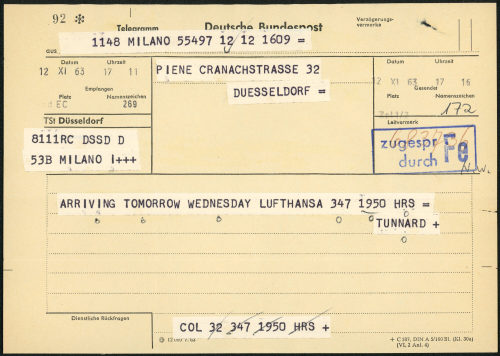 92 *
Telegramm Deutsche Bundespost
Verzögerungs-
vermerke
aus
1148 MILANO 55497 12 12 1609 =
Datum Uhrzeit
12 XI 63 17 11
Empfangen
Platz Namenszeichen
EC 269
PIENE CRANACHSTRASSE 32
DUESSELDORF =
Datum Uhrzeit
12 XI 63 17 16
Gesendet
Platz Namenszeichen
172
TSt Düsseldorf
Leitvermerk
8111RC DSSD D
53B MILANO I+++
zugespr
durch Fe
ARRIVING TOMORROW WEDNESDAY LUFTHANSA 347 1950 HRS =
TUNNARD +
Dienstliche Rückfragen
COL 32 347 1950 HRS +
+ C 187, DIN A 5/160 Bl. (Kl. 39a)
(VI, 2 Anl. 4)